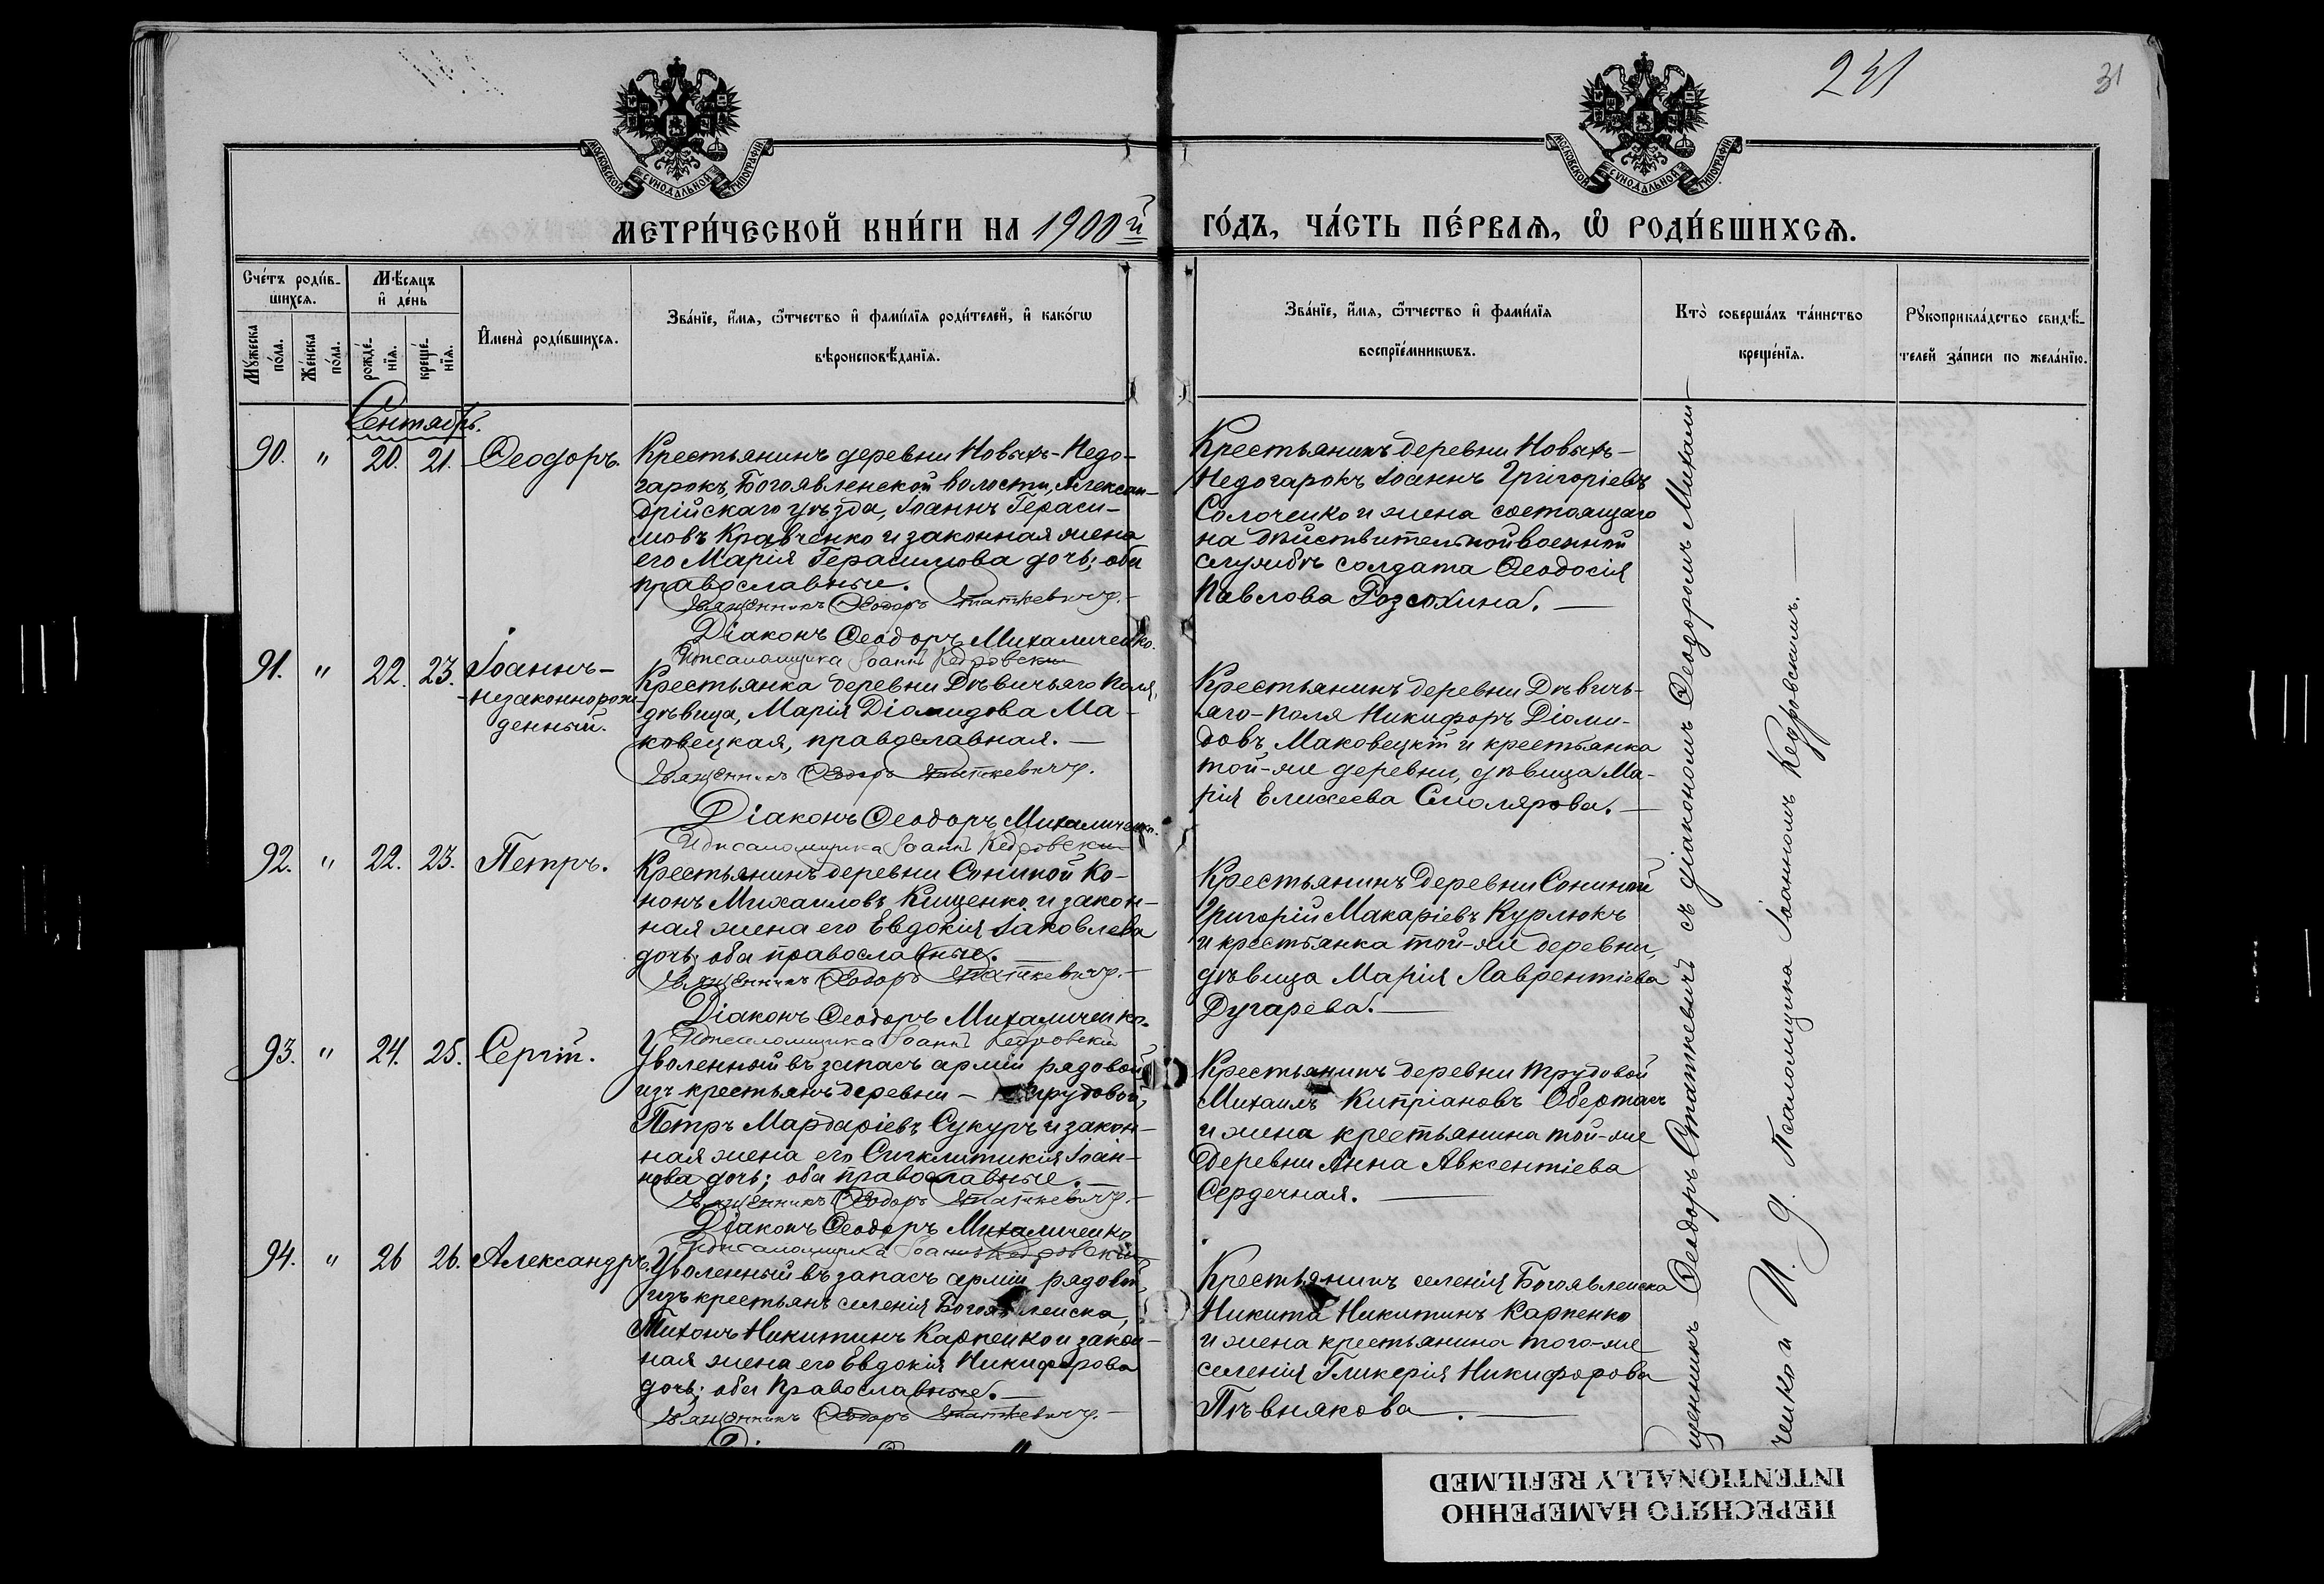 241
31
МОСКОВСКОЙ СѴНОДАЛЬНОЙ ТИПОГРАФІИ
МОСКОВСКОЙ СѴНОДАЛЬНОЙ ТИПОГРАФІИ
МЕТРИ́ЧЕСКОЙ КНИ́ГИ НА 1900й ГО́ДЪ, ЧА́СТЬ ПЕ́РВАѦ, Ѡ҆ РОДИ́ВШИХСѦ.
Сче́тъ роди́в-
шихсѧ.
Мꙋ́жеска
по́ла.
Же́нска
по́ла.
Мѣ́сѧцъ
и҆ де́нь
рожде́-
нїѧ.
креще́-
нїѧ.
И҆мена̀ роди́вшихсѧ.
Зва́нїе, и҆́мѧ, ѻ҆́тчество и҆ фами́лїѧ роди́телей, и҆ како́гѡ
вѣроисповѣ́данїѧ.
Зва́нїе, и҆́мѧ, ѻ҆́тчество и҆ фами́лїѧ
воспрїе́мникѡвъ.
Кто̀ соверша́лъ та́инство
креще́нїѧ.
Рꙋкоприкла́дство свидѣ́-
телей за́писи по жела́нїю.
Сентябрь.
90. " 20. 21. Ѳеодоръ.
Крестьянинъ деревни Новыхъ-Недо-
гарокъ, Богоявленской волости, Алексан-
дрійскаго уѣзда, Іоаннъ Гераси-
мовъ Кравченко и законная жена
его Марія Герасимова дочь; оба
православные.
Священникъ Ѳеодоръ Статкевичъ.
Діаконъ Ѳеодоръ Михаличенко.
И д псаломщика Іоаннъ Кедровскій
Крестьянинъ деревни Новыхъ-
Недогарокъ Іоаннъ Григоріевъ
Солоченко и жена состоящаго
на дѣйствительной военной
службѣ солдата Ѳеодосія
Павлова Розсохина. —
91. " 22. 23. Іоаннъ-
-незаконнорож-
денный.
Крестьянка деревни Дѣвичьяго Поля,
дѣвица, Марія Діомидова Ма-
ковецкая, православная. —
Священникъ Ѳеодоръ Статкевичъ.
Діаконъ Ѳеодоръ Михаличенко.
И д псаломщика Іоаннъ Кедровскій
Крестьянинъ деревни Дѣвичь-
яго-поля Никифоръ Діоми-
довъ Маковецкій и крестьянка
той-же деревни, дѣвица Ма-
рія Елисеева Смолярова. —
92. " 22. 23. Петръ.
Крестьянинъ деревни Сониной Ко-
нонъ Михаиловъ Кищенко и закон-
ная жена его Евдокія Іаковлева
дочь; оба православные. —
Священникъ Ѳеодоръ Статкевичъ. —
Діаконъ Ѳеодоръ Михаличенко.
И д псаломщика Іоаннъ Кедровскій
Крестьянинъ деревни Сониной
Григорій Макаріевъ Курлюкъ
и крестьянка той-же деревни,
дѣвица Марія Лаврентіева
Дугарева. —
93. " 24. 25. Сергій.
Уволенный въ запасъ арміи рядовой
изъ крестьянъ деревни — Трудовой,
Петръ Мардаріевъ Сукуръ и закон-
ная жена его Синклитикія Іоан-
нова дочь; оба православные. —
Священникъ Ѳеодоръ Статкевичъ. —
Діаконъ Ѳеодоръ Михаличенко
И д псаломщика Іоаннъ Кедровскій
Крестьянинъ деревни Трудовой
Михаилъ Кипріановъ Обертасъ
и жена крестьянина той-же
деревни Анна Авксентіева
Сердечная. —
94. " 26 26. Александръ.
Уволенный въ запасъ арміи рядовой,
изъ крестьянъ селенія Богоявленска,
Тихонъ Никитинъ Карпенко и закон-
ная жена его Евдокія Никифорова
дочь; оба православные. —
Священникъ Ѳеодоръ Статкевичъ. —
Крестьянинъ селенія Богоявленска
Никита Никитинъ Карпенко
и жена крестьянина того-же
селенія Гликерія Никифорова
Пѣвнякова. —
щенникъ Ѳеодоръ Статкевичъ съ діакономъ Ѳеодоромъ Михали-
ченко и И. д. Псаломщика Іоанномъ Кедровскимъ. —
ПЕРЕСНЯТО НАМЕРЕННО
INTENTIONALLY REFILMED